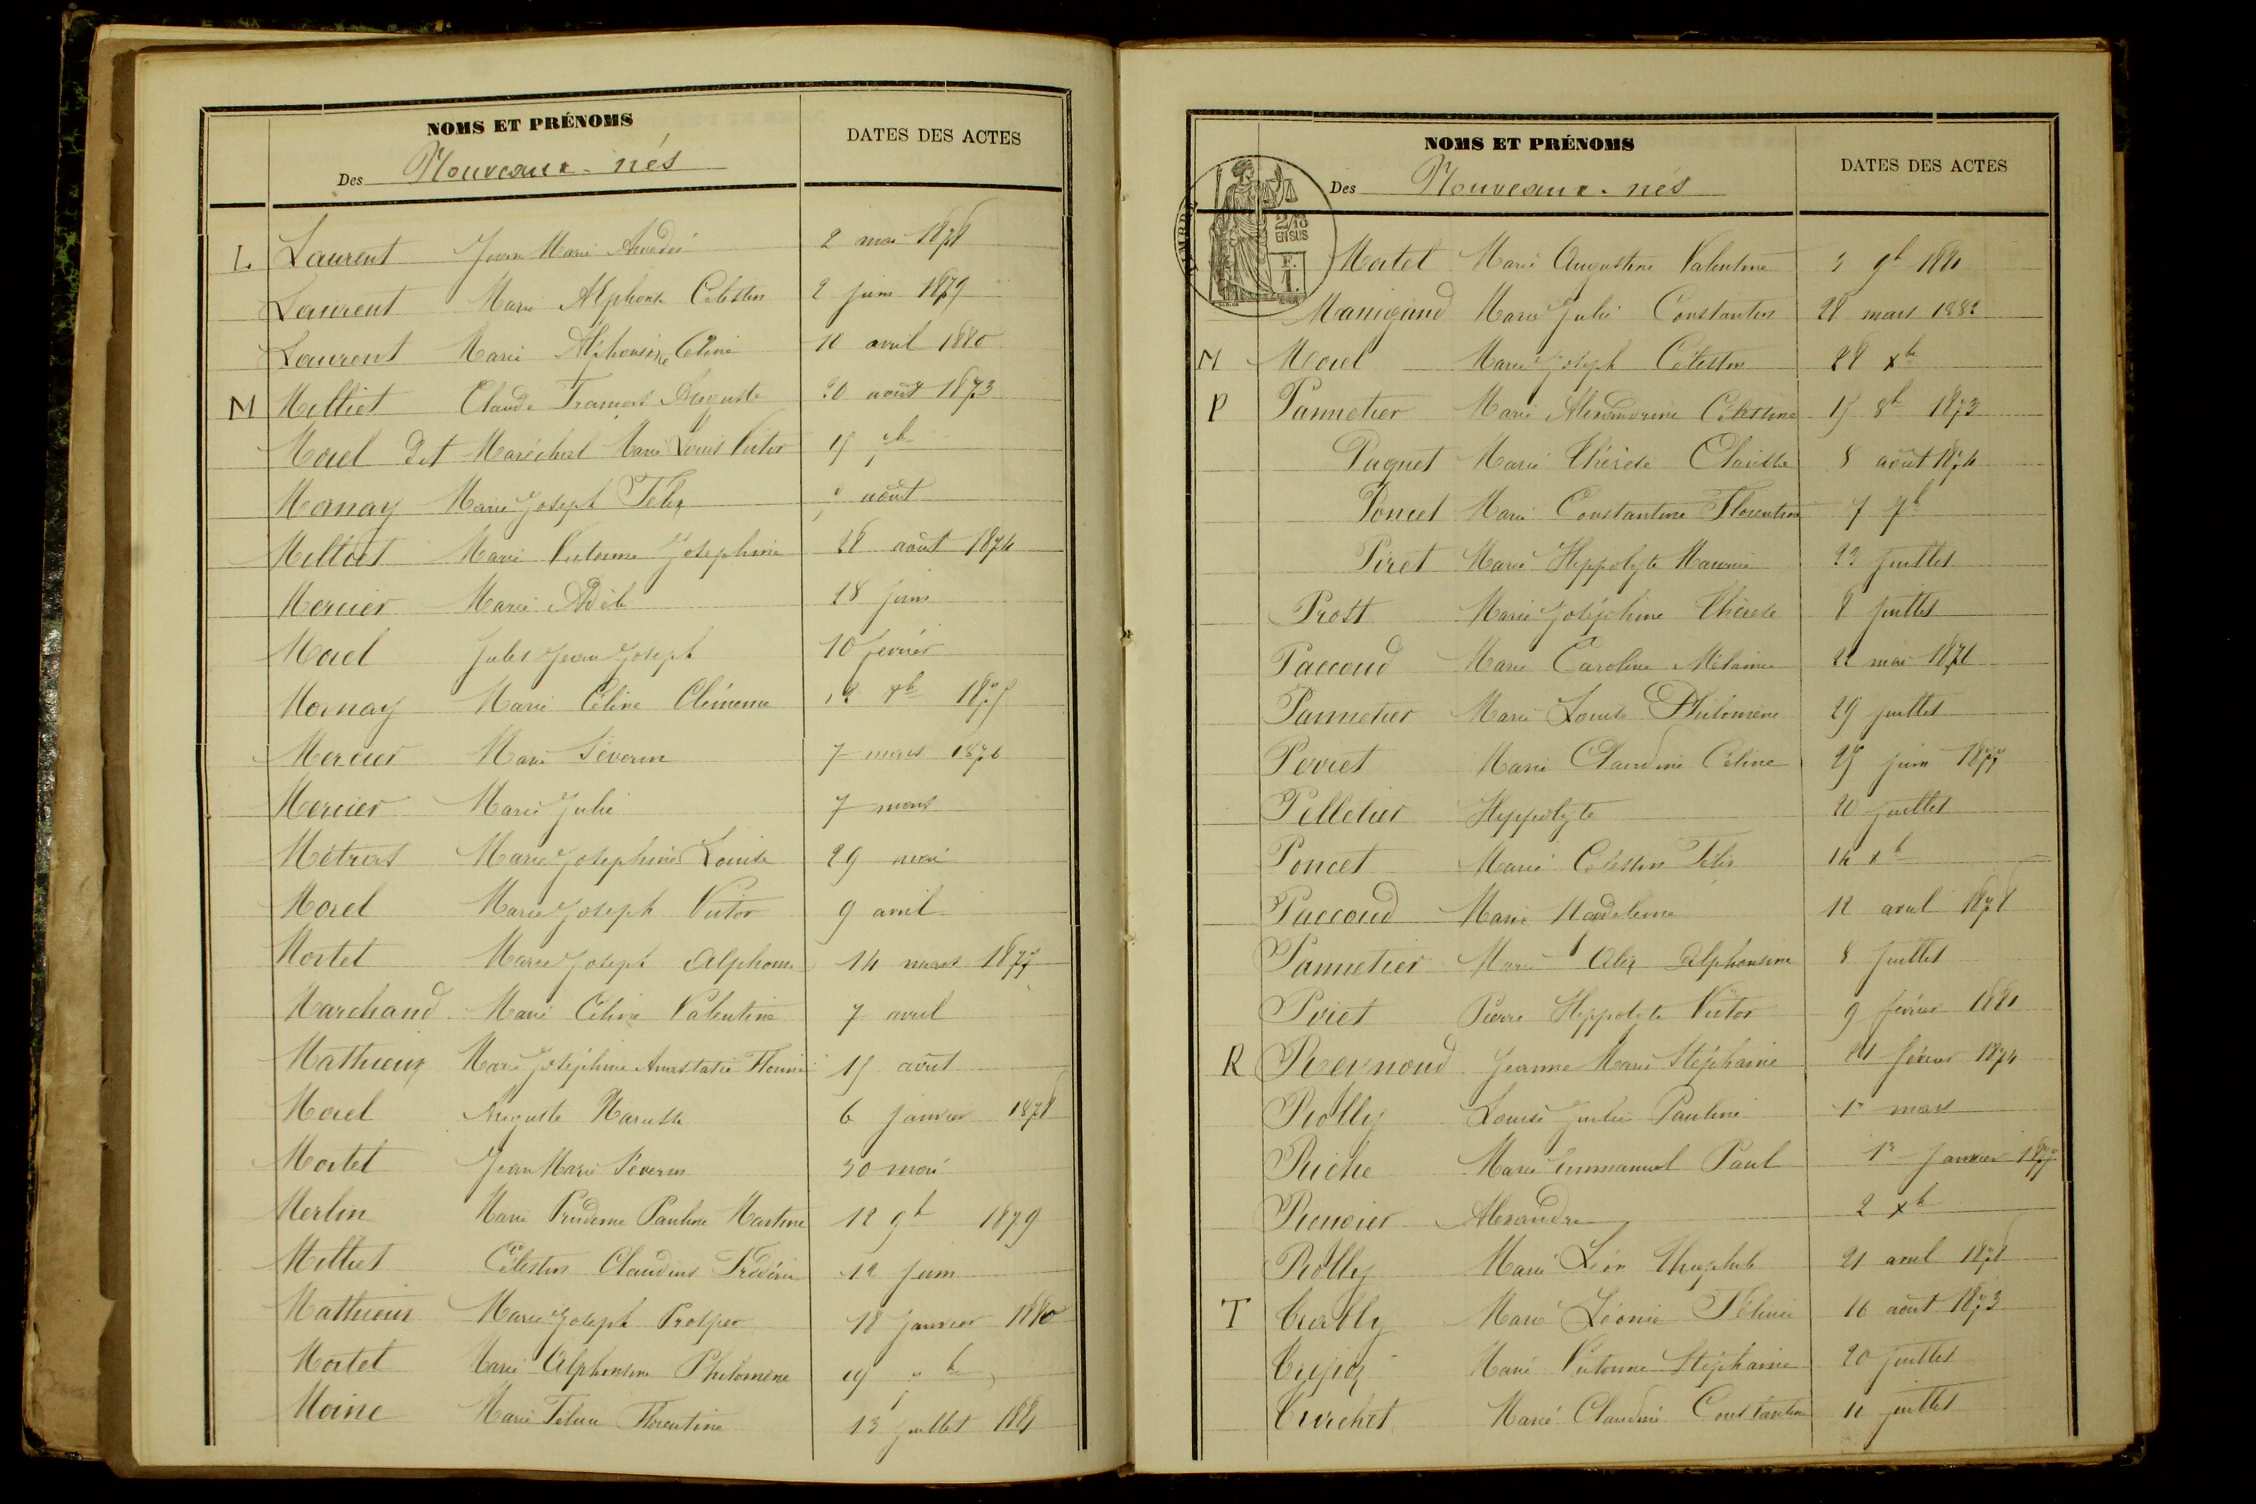 NOMS ET PRÉNOMS
DATES DES ACTES
Des Nouveaux-nés
L Laurent Jean Marie Amédé 2 mai 1878
Laurent Marie Alphonse Célestin 2 juin 1879
Laurent Marie Alphonsine Céline 11 avril 1880
M Milliet Claude François Auguste 20 août 1873
Morel dit Maréchal Marie Louis Victor 15
Mornay Marie Joseph Félix août
Milliet Marie Victorine Joséphine 28 août 1874
Mercier Marie Adèle 18 juin
Morel Jules Jean Joseph 10 février
Mornay Marie Céline Clémence 1875
Mercier Marie Séverin 7 mars 1876
Mercier Marie Julie 7 mars
Métrat Marie Joséphine Louise 29 mai
Morel Marie Joseph Victor 9 avril
Mortet Marie Joseph Alphonse 14 mars 1877
Marchand Marie Céline Valentine 7 avril
Mathieux Marie Joséphine Anastasie 15 août
Morel Auguste Narcisse 6 janvier 1878
Mortet Jean Marie Séverin 30 mai
Merlin Marie Prudence Pauline Martine 12 9b 1879
Milliet Célestin Claudius Frédéric 12 juin
Mathieux Marie Joseph Prosper 18 janvier 1880
Mortet Marie Alphonsine Philomène
Moine Marie Florentine 13 juillet 1881
NOMS ET PRÉNOMS
DATES DES ACTES
Des Nouveaux-nés
TIMBRE
2/10
EN SUS
F.
1
Mortet Marie Augustine Valentine 3 9b 1881
Manigand Marie Julie Constantin 28 mars 1882
M Morel Marie Joseph Célestin 28 xb
P Pannetier Marie Alexandrine Célestine 15 8b 1873
Paquet Marie Thérèse Clarisse 8 août 1874
Poncet Marie Constantine Florentine 7 7b
Piret Marie Hippolyte 23 juillet
Prost Marie Joséphine Thérèse 8 juillet
Paccoud Marie Caroline Mélanie 22 mai 1876
Pannetier Marie Louise Philomène 29 juillet
Perret Marie Claudine Céline 25 juin 1877
Pelletier Hyppolyte 20 juillet
Poncet Marie Célestin Félix 14 xb
Paccoud Marie Madeleine 12 avril 1878
Pannetier Marie Alix Alphonsine 8 juillet
Piret Pierre Hyppolyte Victor 9 février 1881
R Reynoud Jeanne Marie Stéphanie 21 février 1874
Rolly Louise Julie Pauline 1r mars
Riche Marie Emmanuel Paul 1r janvier 1877
Alexandre 2 xb
Rolly Marie Léon Théophile 21 avril 1878
T Marie Léonie 16 août 1873
Marie Victorine Stéphanie 20 juillet
Marie Claudine Constantine 11 juillet